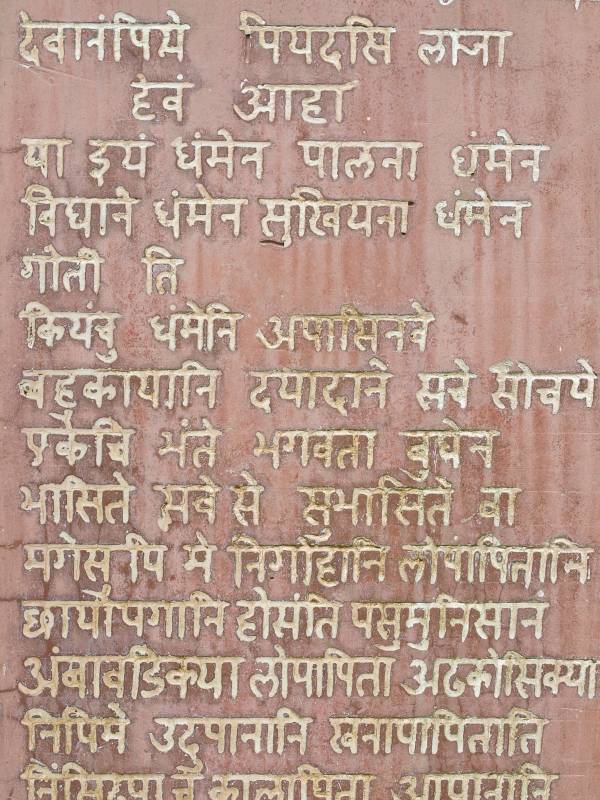 देवानंपिमे पियदसि लाजा
हेवं आहा
या इयं धंमेन पालना धंमेन
विधाने धंमेन सुखियना धंमेन
गोती ति
कियंचु धंमेति अपासिनवे
बहुकायानि दयादाने सवे सोचये
एकेचि भंते भगवता बुधेन
भासिते सवे से सुभासिते वा
मगेसुपि मे निगोहानि लोपापितानि
छायोपगानि होसंति पसुमुनिसान
अंबावडिक्या लोपापिता अढकोसिक्या
निपिमे उदुपानानि खनापापितानि
कालापिता आपानानि